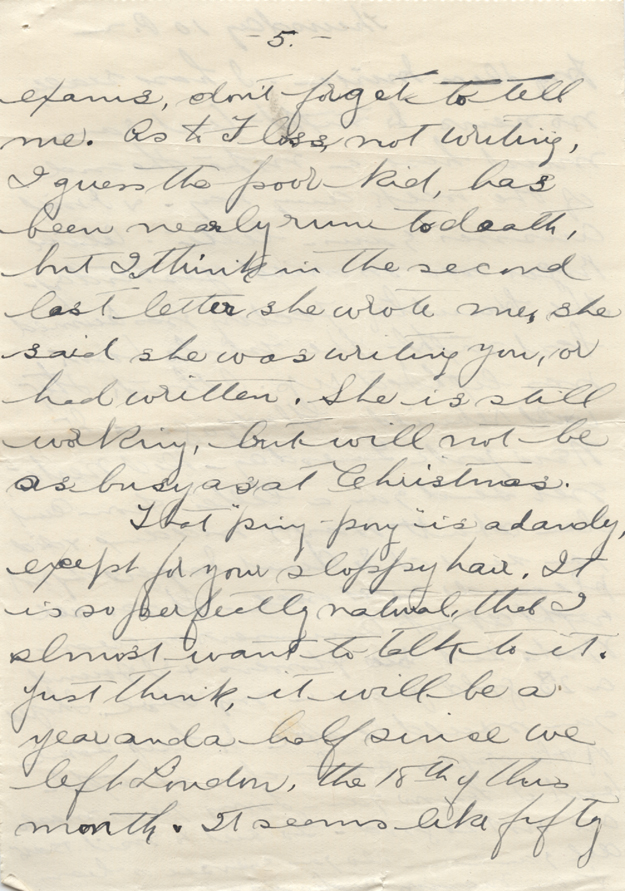 - 5. -
exams, don't forget to tell
me. As to Floss, not writing,
I guess the poor kid, has
been nearly run to death,
but I think in the second
last letter she wrote me, she
said she was writing you, or
had written. She is still
working, but will not be
as busy as at Christmas.
That "ping-pong" is a dandy,
except for your sloppy hair. It
is so perfectly natural, that I
almost want to talk to it.
Just think, it will be a
year and a half since we
left London, the 18th of this
month. It seems like fifty